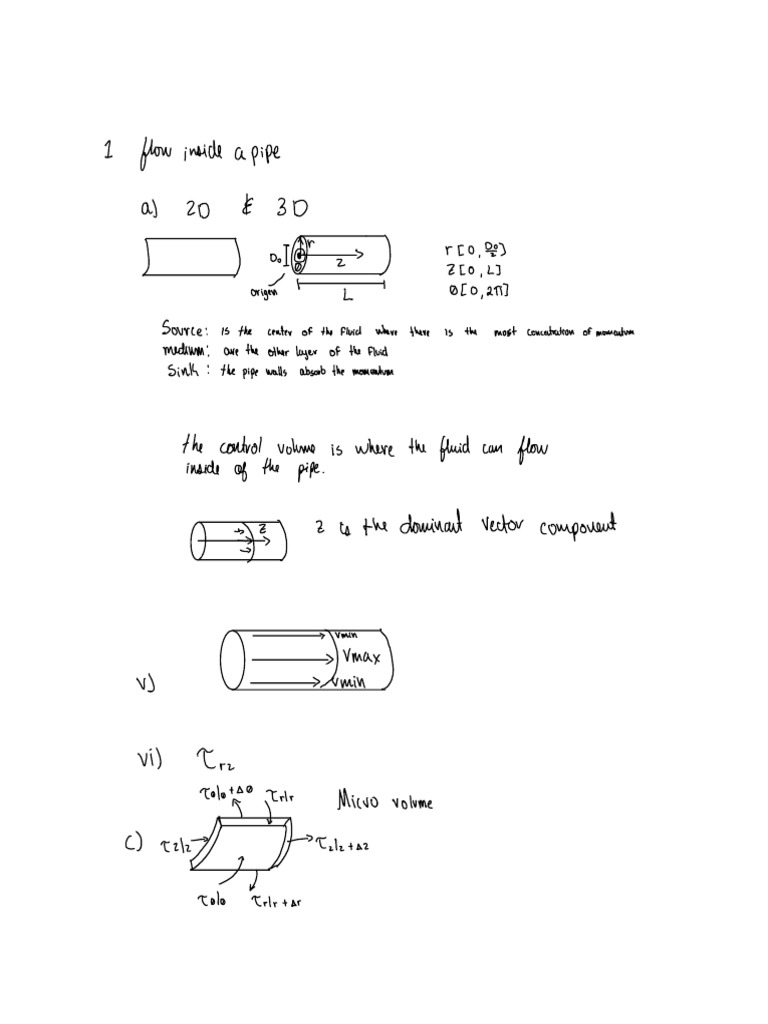 1 flow inside a pipe
a) 2D & 3D
r
D₀
z
θ
origen
L
r [0, D₀/2]
z [0, L]
θ [0, 2π]
Source: is the center of the fluid where there is the most concentration of momentum
medium: are the other layer of the fluid
Sink: the pipe walls absorb the momentum
the control volume is where the fluid can flow
inside of the pipe.
z
z is the dominant vector component
vmin
Vmax
vmin
v)
vi) τrz
τθ|θ+Δθ
τr|r
Micro volume
c)
τz|z
τz|z+Δz
τθ|θ
τr|r+Δr